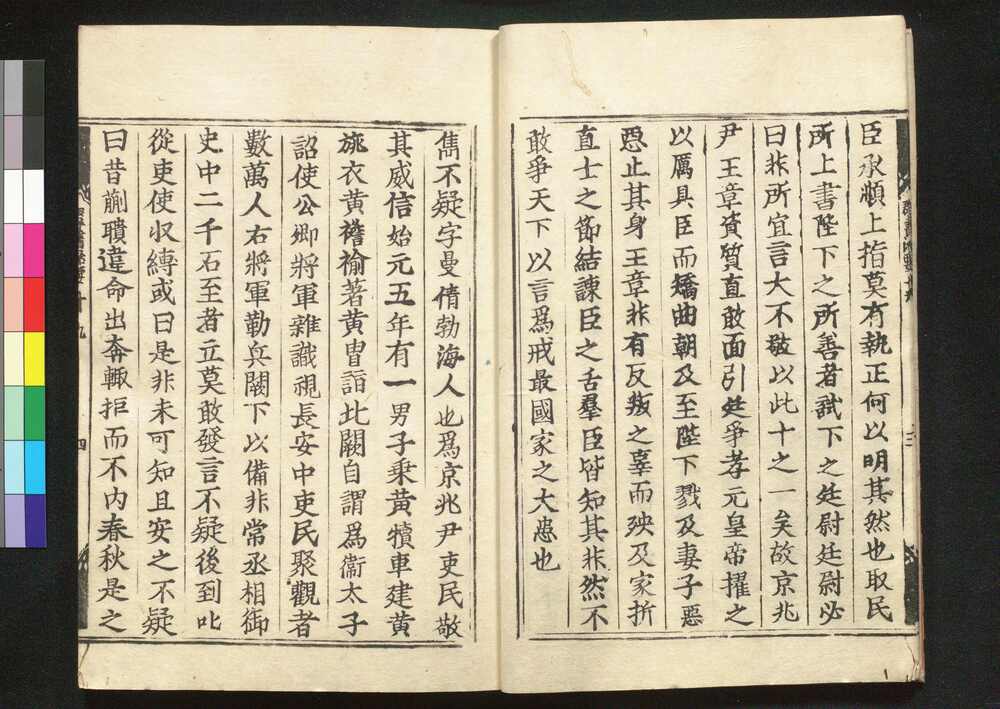 臣承順上指莫有執正何以明其然也取民
所上書陛下之所善者試下之廷尉廷尉必
曰非所宜言大不敬以此卜之一矣故京兆
尹王章資質直敢面引廷爭孝元皇帝擢之
以厲具臣而矯曲朝及至陛下戮及妻子惡
惡止其身王章非有反叛之辜而殃及家折
直士之節結諫臣之舌羣臣皆知其非然不
敢爭天下以言爲戒最國家之大患也
雋不疑字曼倩勃海人也爲京兆尹吏民敬
其威信始元五年有一男子乘黃犢車建黃
旐衣黃襜褕著黃冒詣北闕自謂爲衞太子
詔使公卿將軍雜識視長安中吏民聚觀者
數萬人右將軍勒兵闕下以備非常丞相御
史中二千石至者立莫敢發言不疑後到叱
從吏使收縛或曰是非未可知且安之不疑
曰昔蒯聵違命出奔輙拒而不內春秋是之
十九
四